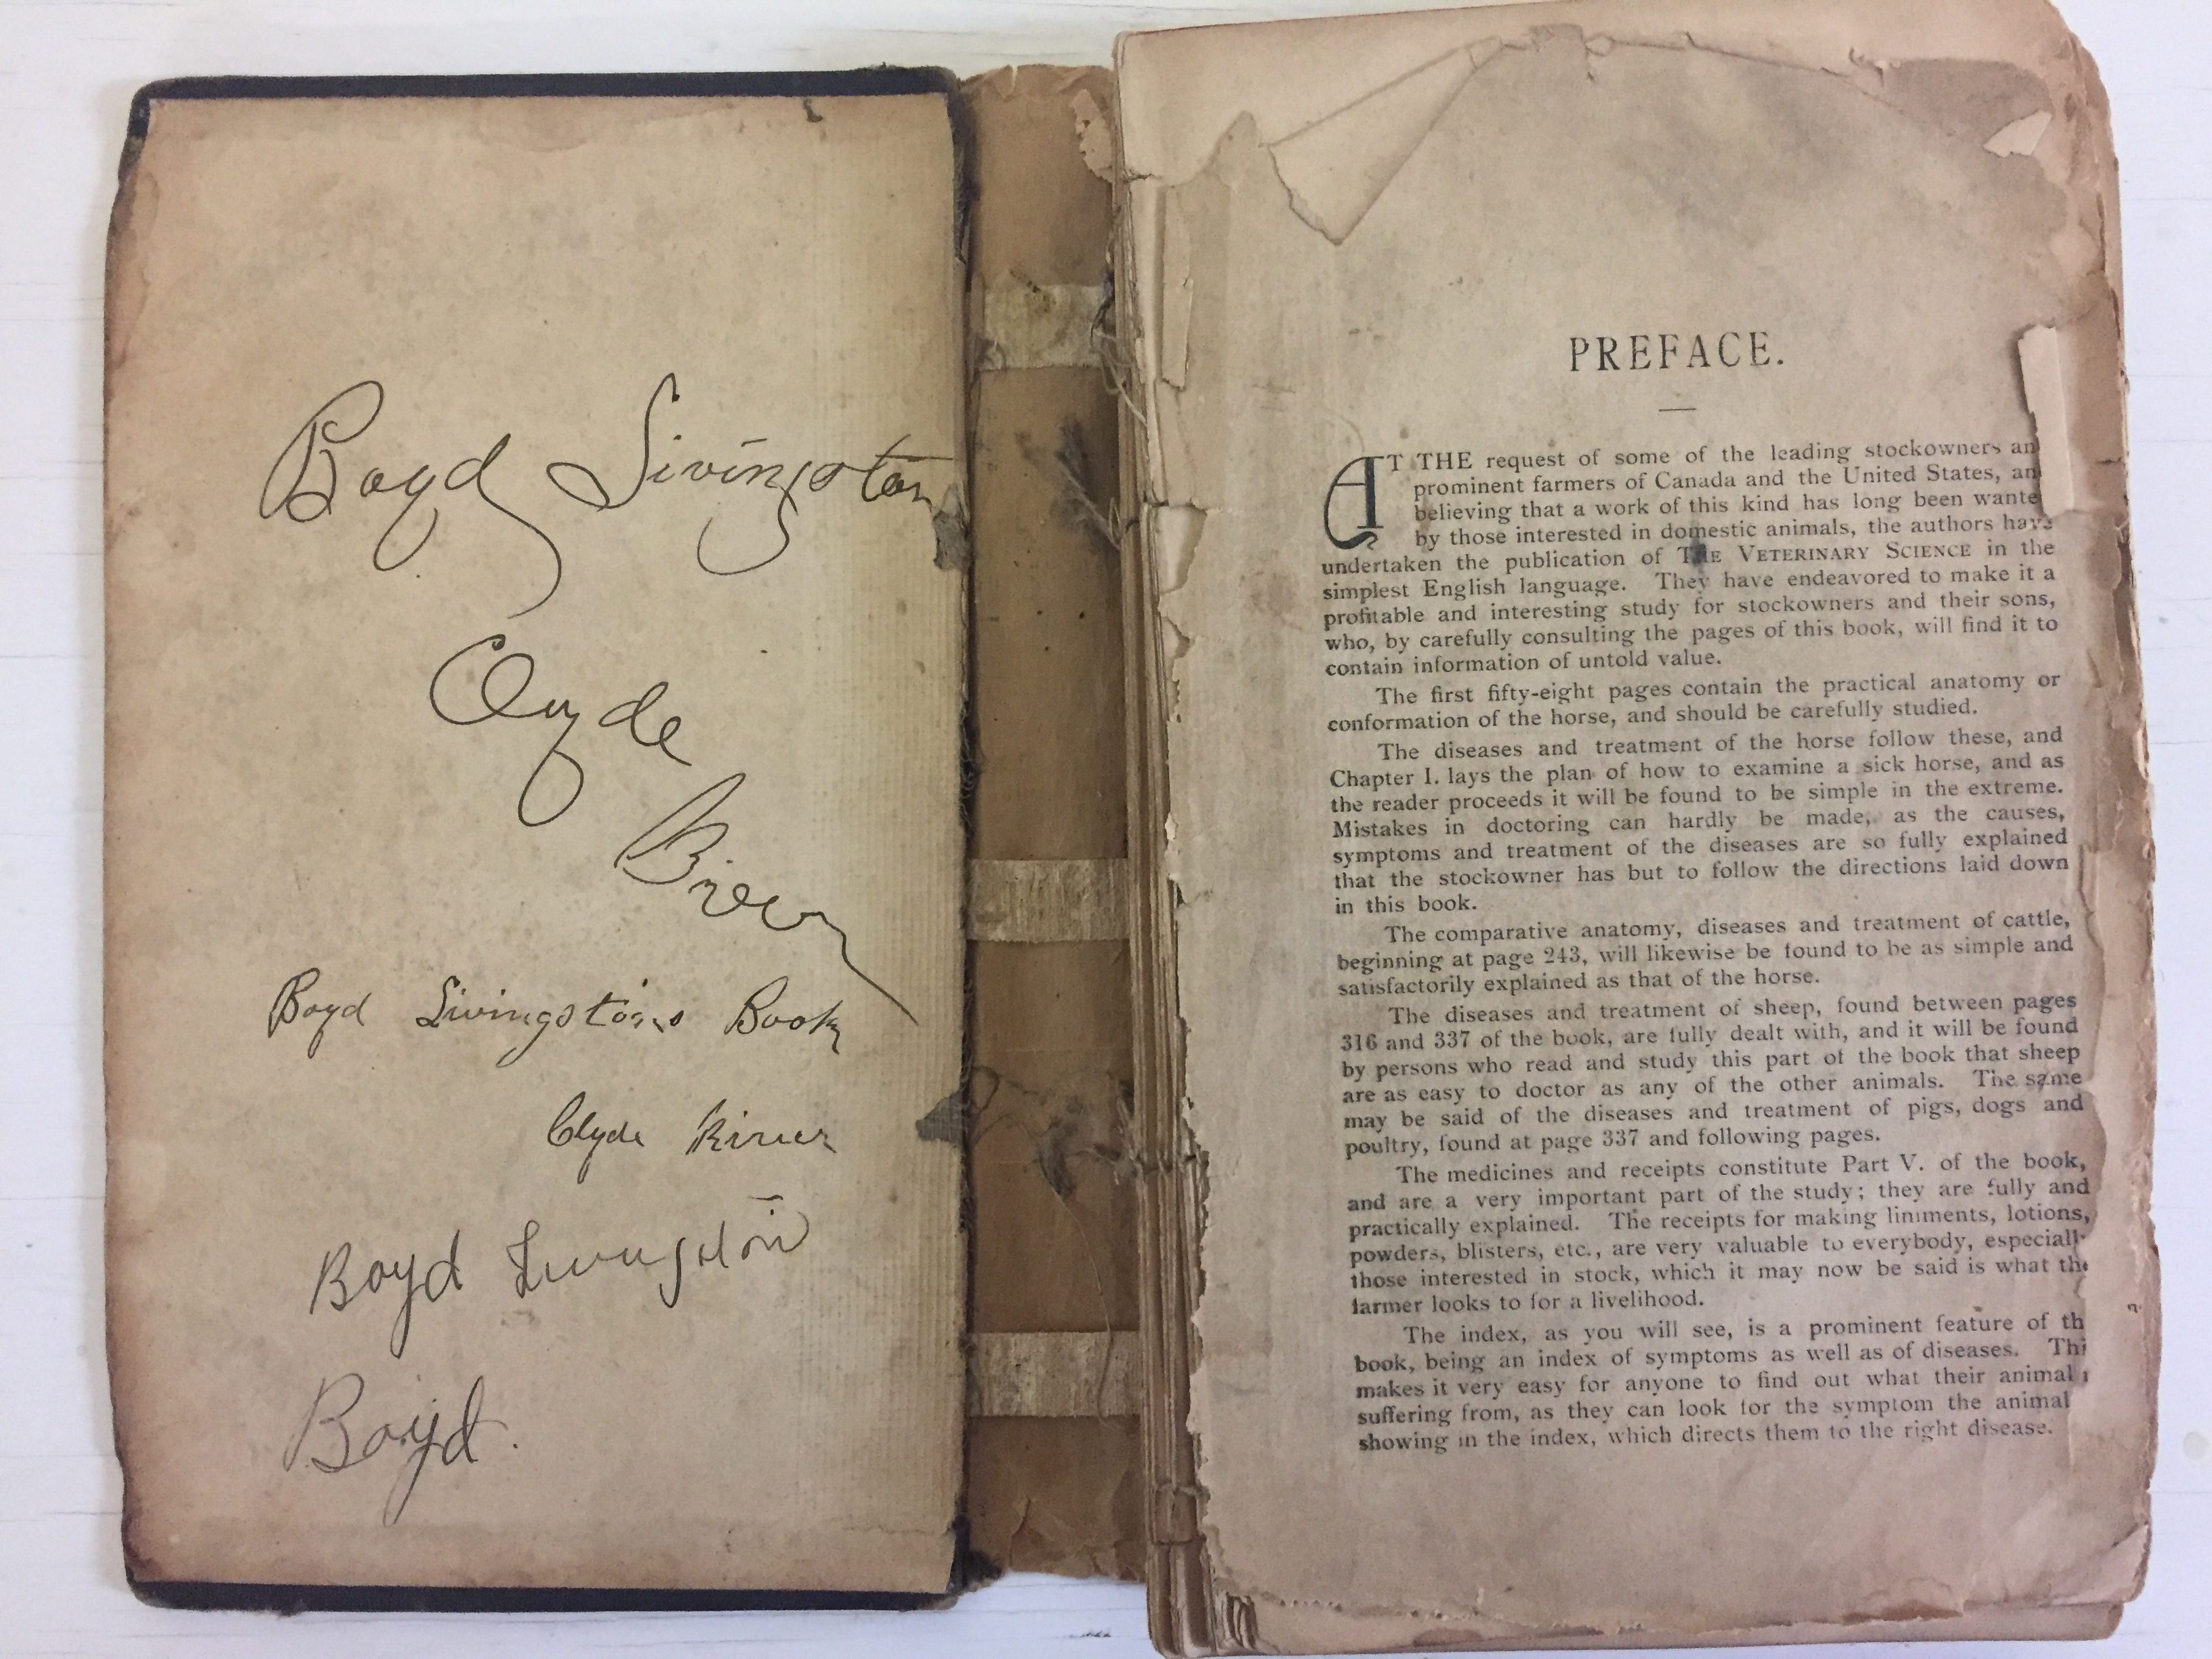 Boyd Livingston
Clyde
River
Boyd Livingston's Book
Clyde River
Boyd Livingston
Boyd.
PREFACE.
AT THE request of some of the leading stockowners an
prominent farmers of Canada and the United States, an
believing that a work of this kind has long been wante
by those interested in domestic animals, the authors have
undertaken the publication of THE VETERINARY SCIENCE in the
simplest English language. They have endeavored to make it a
profitable and interesting study for stockowners and their sons,
who, by carefully consulting the pages of this book, will find it to
contain information of untold value.
The first fifty-eight pages contain the practical anatomy or
conformation of the horse, and should be carefully studied.
The diseases and treatment of the horse follow these, and
Chapter I. lays the plan of how to examine a sick horse, and as
the reader proceeds it will be found to be simple in the extreme.
Mistakes in doctoring can hardly be made, as the causes,
symptoms and treatment of the diseases are so fully explained
that the stockowner has but to follow the directions laid down
in this book.
The comparative anatomy, diseases and treatment of cattle,
beginning at page 243, will likewise be found to be as simple and
satisfactorily explained as that of the horse.
The diseases and treatment of sheep, found between pages
316 and 337 of the book, are fully dealt with, and it will be found
by persons who read and study this part of the book that sheep
are as easy to doctor as any of the other animals. The same
may be said of the diseases and treatment of pigs, dogs and
poultry, found at page 337 and following pages.
The medicines and receipts constitute Part V. of the book,
and are a very important part of the study; they are fully and
practically explained. The receipts for making liniments, lotions,
powders, blisters, etc., are very valuable to everybody, especiall
those interested in stock, which it may now be said is what the
farmer looks to for a livelihood.
The index, as you will see, is a prominent feature of th
book, being an index of symptoms as well as of diseases. Thi
makes it very easy for anyone to find out what their animal
suffering from, as they can look for the symptom the animal
showing in the index, which directs them to the right disease.